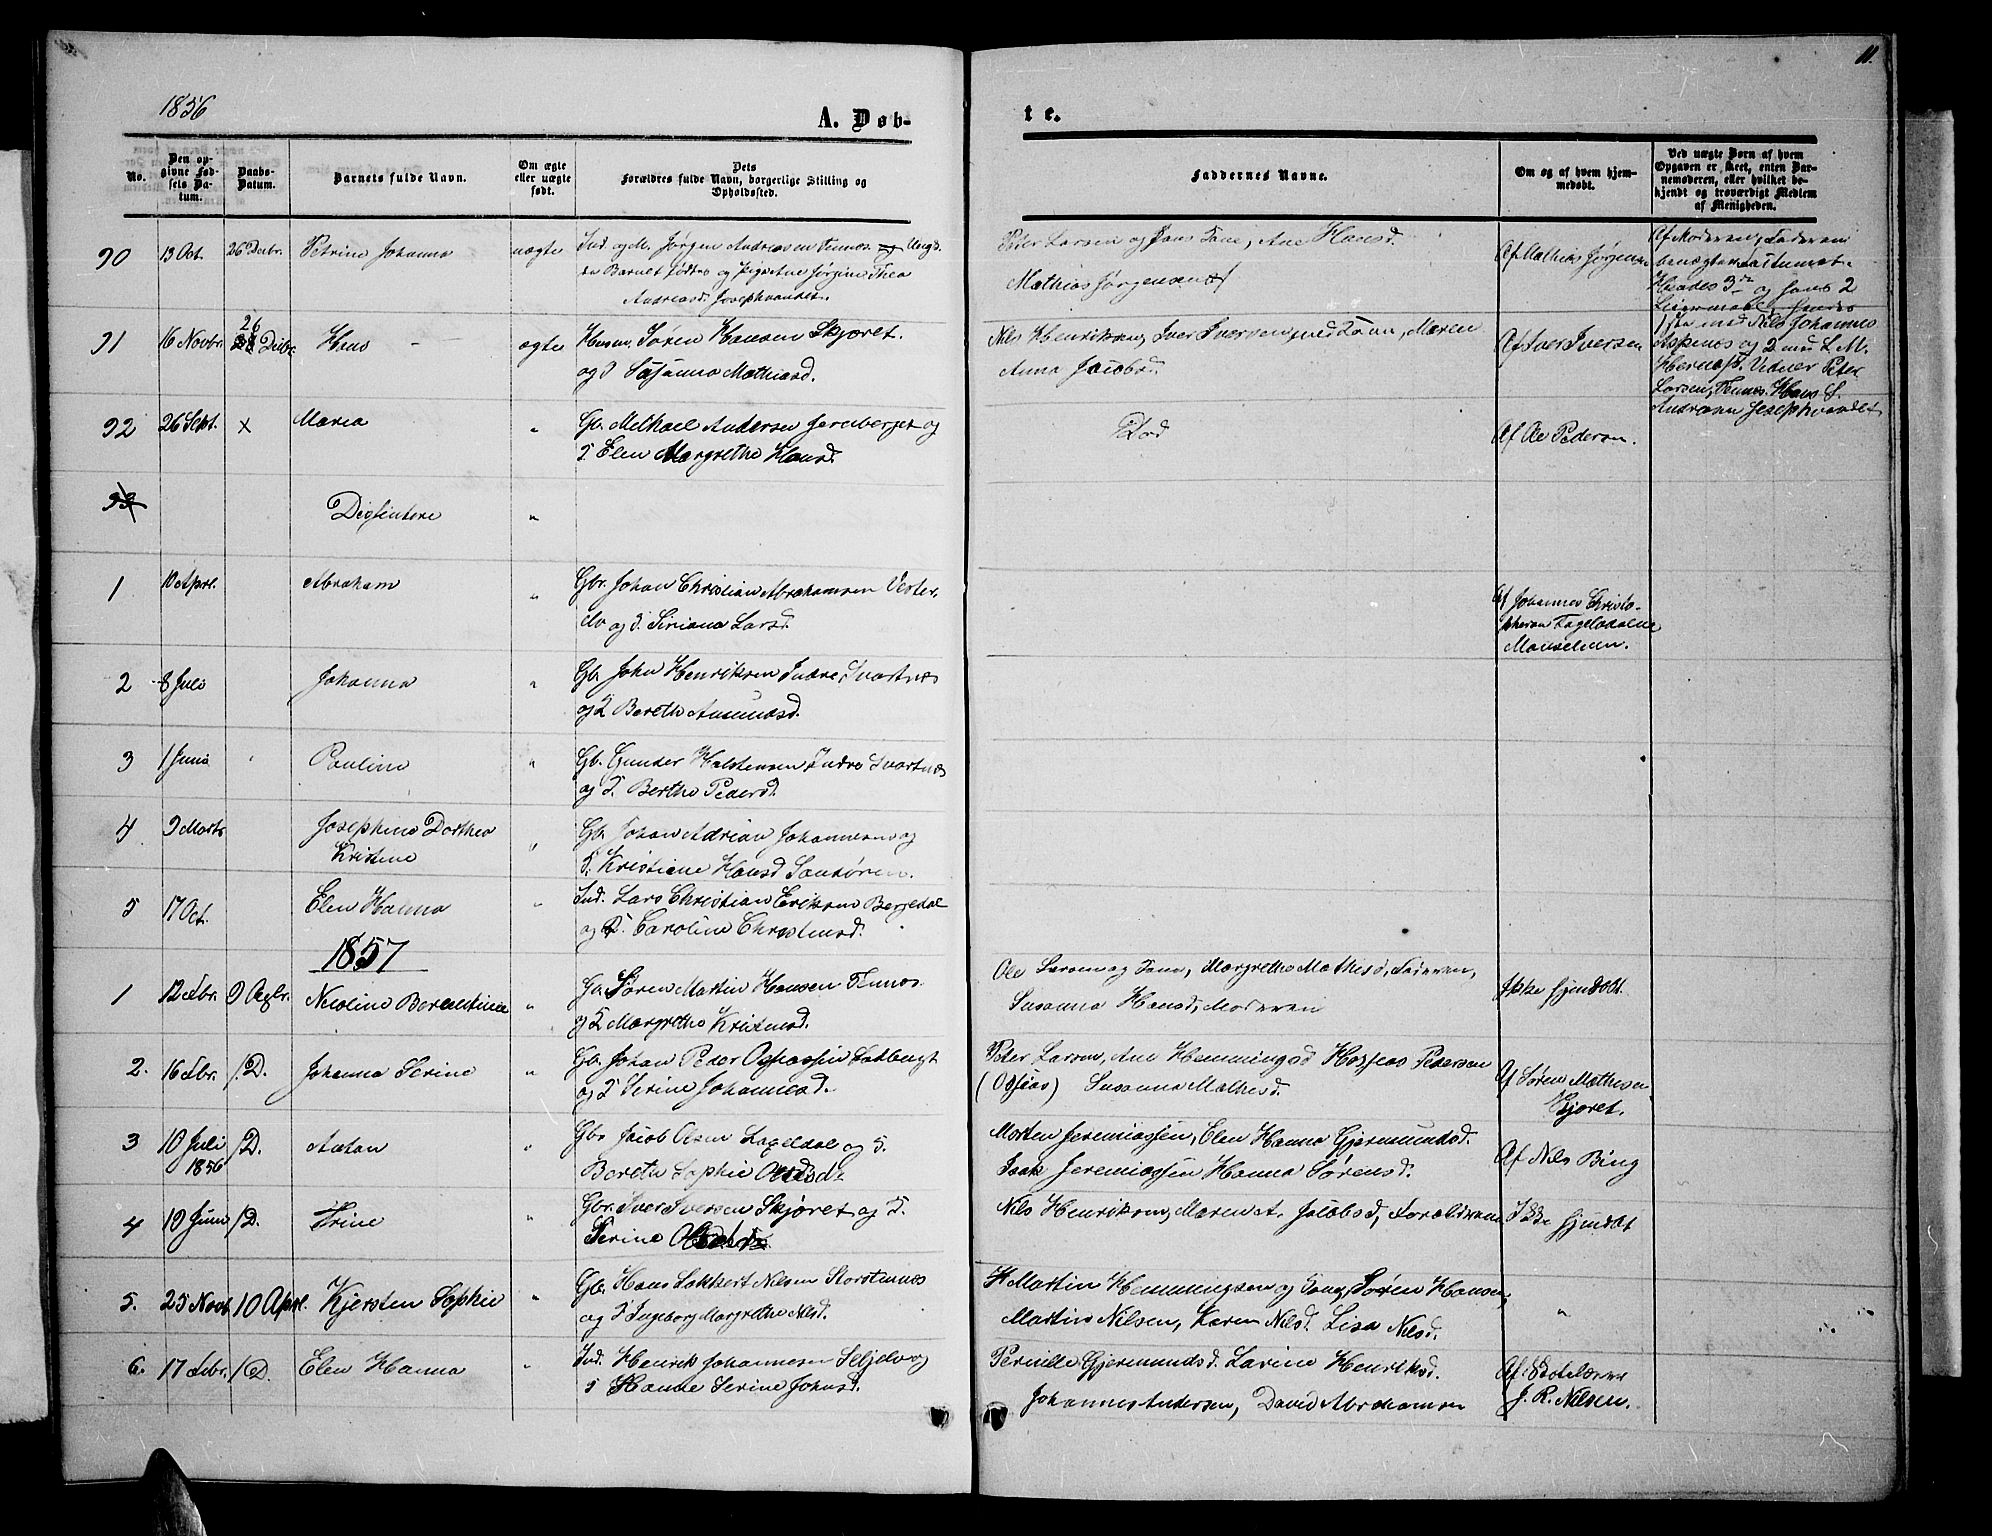 1856
A. Døb-
te.
11.
No.
Den op-
givne Fød-
sels Da-
tum.
Daabs-
Datum.
Barnets fulde Navn.
Om ægte
eller uægte
født.
Dets
Forældres fulde Navn, borgerlige Stilling og
Opholdssted.
Faddernes Navne.
Om og af hvem hjem-
medøbt.
Ved uægte Børn af hvem
Opgaven er skeet, enten Bar-
nemoderen, eller hvilket be-
kjendt og troværdigt Medlem
af Menigheden.
90 13 Oct. 26 Decbr. Petrine Johanna uægte Ind. og M. Jørgen Andreasen Tennes
Barnet fødtes og Pige Jørgine Thea
Andreasd. Josephvandet.
Peter Larsen og Jens Tane, Ane Hansd.
Mathias Jørgensen
Af Mathias Jørgensen
Af Moderen, Faderen
benægter
Hendes 3die og hans 2
Leiermaal
med Nils Johannes
Aspenes og 2 med L. M.
Hernæss. Vidner Peter
Larsen, Tennes. Hans L.
Andreasen Josephvandet
91 16 Novbr. 26 Decbr. Hans ægte Huusm. Søren Hansen Skjæret.
og I Susanna Mathiasd.
Nils Henriksen, Iver Iversen med Kone, Maren
Anna Jacobsd.
Af Iver Iversen
92 26 Sept. x Maria " Gb. Mikael Andersen Jernberget og
I. Elen Margrethe Hansd.
Død
Af Ole Pedersen.
93 Dissentere "
1 10 Aprl. Abraham " Gbr. Johan Christian Abrahamsen Vester-
elv og I. Siriana Larsd.
Af Johannes Christo-
phersen Fagerlidalen
Maaselven.
2 8 Juli Johanna " Gb. John Henriksen Indre Svartnes
og I Bereth Amundsd.
3 1 Juni Pauline " Gb. Gunder Halstensen Indre Svartnes
og I. Berthe Pedersd.
4 9 Marts Josephine Dorthea
Kristine " Gb. Johan Adrian Johannesen og
I. Kristiane Hansd Sandøren.
5 17 Oct. Elen Hanna " Ind. Lars Christian Eriksen Bergedal
og I. Caroline Christensd.
1857
1 12 Febr. 9 Nicoline Berealstine " Gb. Søren Martin Hansen Tennes
og I Margrethe Kristensd.
Ole Larsen og Kone, Margrethe Mathisd, Faderen,
Susanna Hansd, Moderen
Ikke hjemdøbt.
2. 16 Febr. /D. Johanna Serine " Gb. Johan Peder Osiassen
og I Serine Johannesd.
Peter Larsen, Ane Hemmingsd Hosias Pedersen
(Osias) Susanna Mathisd.
Af Søren Mathisen
Skjæret.
3 10 Juli
1856 /D. Anton " Gbr Jacob Olsen Lageldal og I.
Bereth Sophie Olsd.
Morten Jeremiassen, Elen Hanna Gjermundsd.
Isak Jeremiassen Hanna Sørensd.
Af Nils Bing
4 19 Juni /D. Trine " Gbr. Iver Iversen Skjæret og I.
Serine
Nils Henriksen, Maren A. Jacobsd, Forældrene
Ikke hjemdøbt
5. 25 Novb. 10 Aprl. Kjersten Sophie " Gb. Hans Lokkert Nilsen Storstennes
og I Ingeborg Margrethe Nilsd.
H Martin Hemmingsen og Kone, Søren Hansen,
Martin Nilsen, Karen Nilsd. Lisa Nilsd.
"
6. 17 Febr. /D. Elen Hanna " Ind. Henrik Johannesen Seljelv og
I Hanne Serine Johnsd.
Pernille Gjermundsd. Larine Henriksd.
Johannes Andersen, David Abrahamsen
Af Skolelærer
J. R. Nilsen.